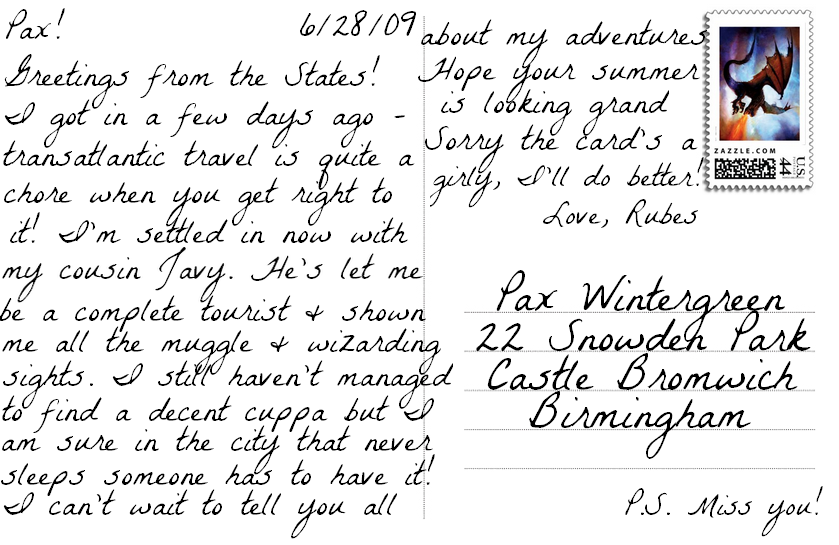 Pax! 6/28/09
Greetings from the States!
I got in a few days ago -
transatlantic travel is quite a
chore when you get right to
it! I'm settled in now with
my cousin Javy. He's let me
be a complete tourist & shown
me all the muggle & wizarding
sights. I still haven't managed
to find a decent cuppa but I
am sure in the city that never
sleeps someone has to have it!
I can't wait to tell you all
about my adventures
Hope your summer
is looking grand
Sorry the card's a
girly, I'll do better!
Love, Rubes
ZAZZLE.COM
U.S.
44
Pax Wintergreen
22 Snowden Park
Castle Bromwich
Birmingham
P.S. Miss you!